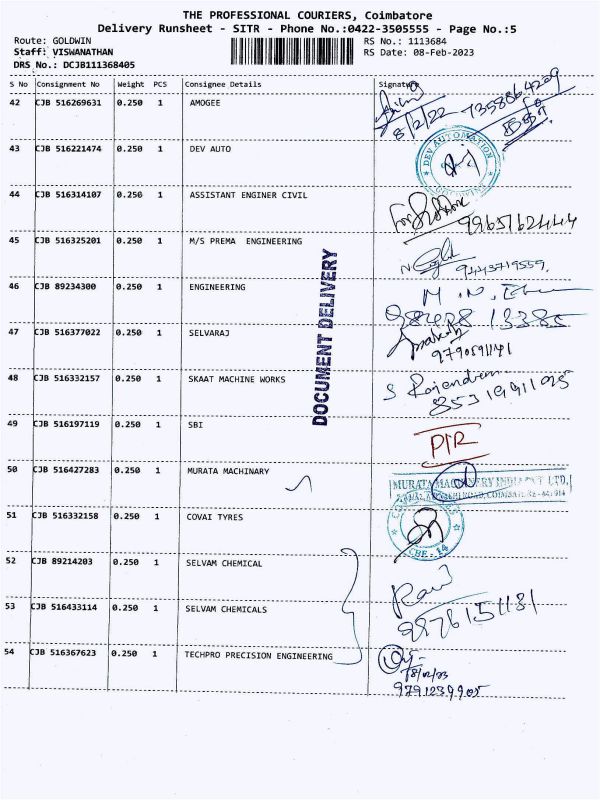 THE PROFESSIONAL COURIERS, Coimbatore
Delivery Runsheet - SITR - Phone No.:0422-3505555 - Page No.:5
Route: GOLDWIN RS No.: 1113684
Staff: VISWANATHAN RS Date: 08-Feb-2023
DRS No.: DCJB111368405
S No Consignment No Weight PCS Consignee Details Signature
42 CJB 516269631 0.250 1 AMOGEE
8/2/22 7358864229
43 CJB 516221474 0.250 1 DEV AUTO
DEV AUTOMATION
44 CJB 516314107 0.250 1 ASSISTANT ENGINER CIVIL
9965162444
45 CJB 516325201 0.250 1 M/S PREMA ENGINEERING
9443719559.
46 CJB 89234300 0.250 1 ENGINEERING
M. N.
47 CJB 516377022 0.250 1 SELVARAJ
9790591141
48 CJB 516332157 0.250 1 SKAAT MACHINE WORKS
S Rajendran
DOCUMENT DELIVERY
49 CJB 516197119 0.250 1 SBI
50 CJB 516427283 0.250 1 MURATA MACHINARY
MURATA MACHINERY INDIA PVT. LTD.,
51 CJB 516332158 0.250 1 COVAI TYRES
CBE - 14
52 CJB 89214203 0.250 1 SELVAM CHEMICAL
Ravi
53 CJB 516433114 0.250 1 SELVAM CHEMICALS
9976151181
54 CJB 516367623 0.250 1 TECHPRO PRECISION ENGINEERING
9791239905